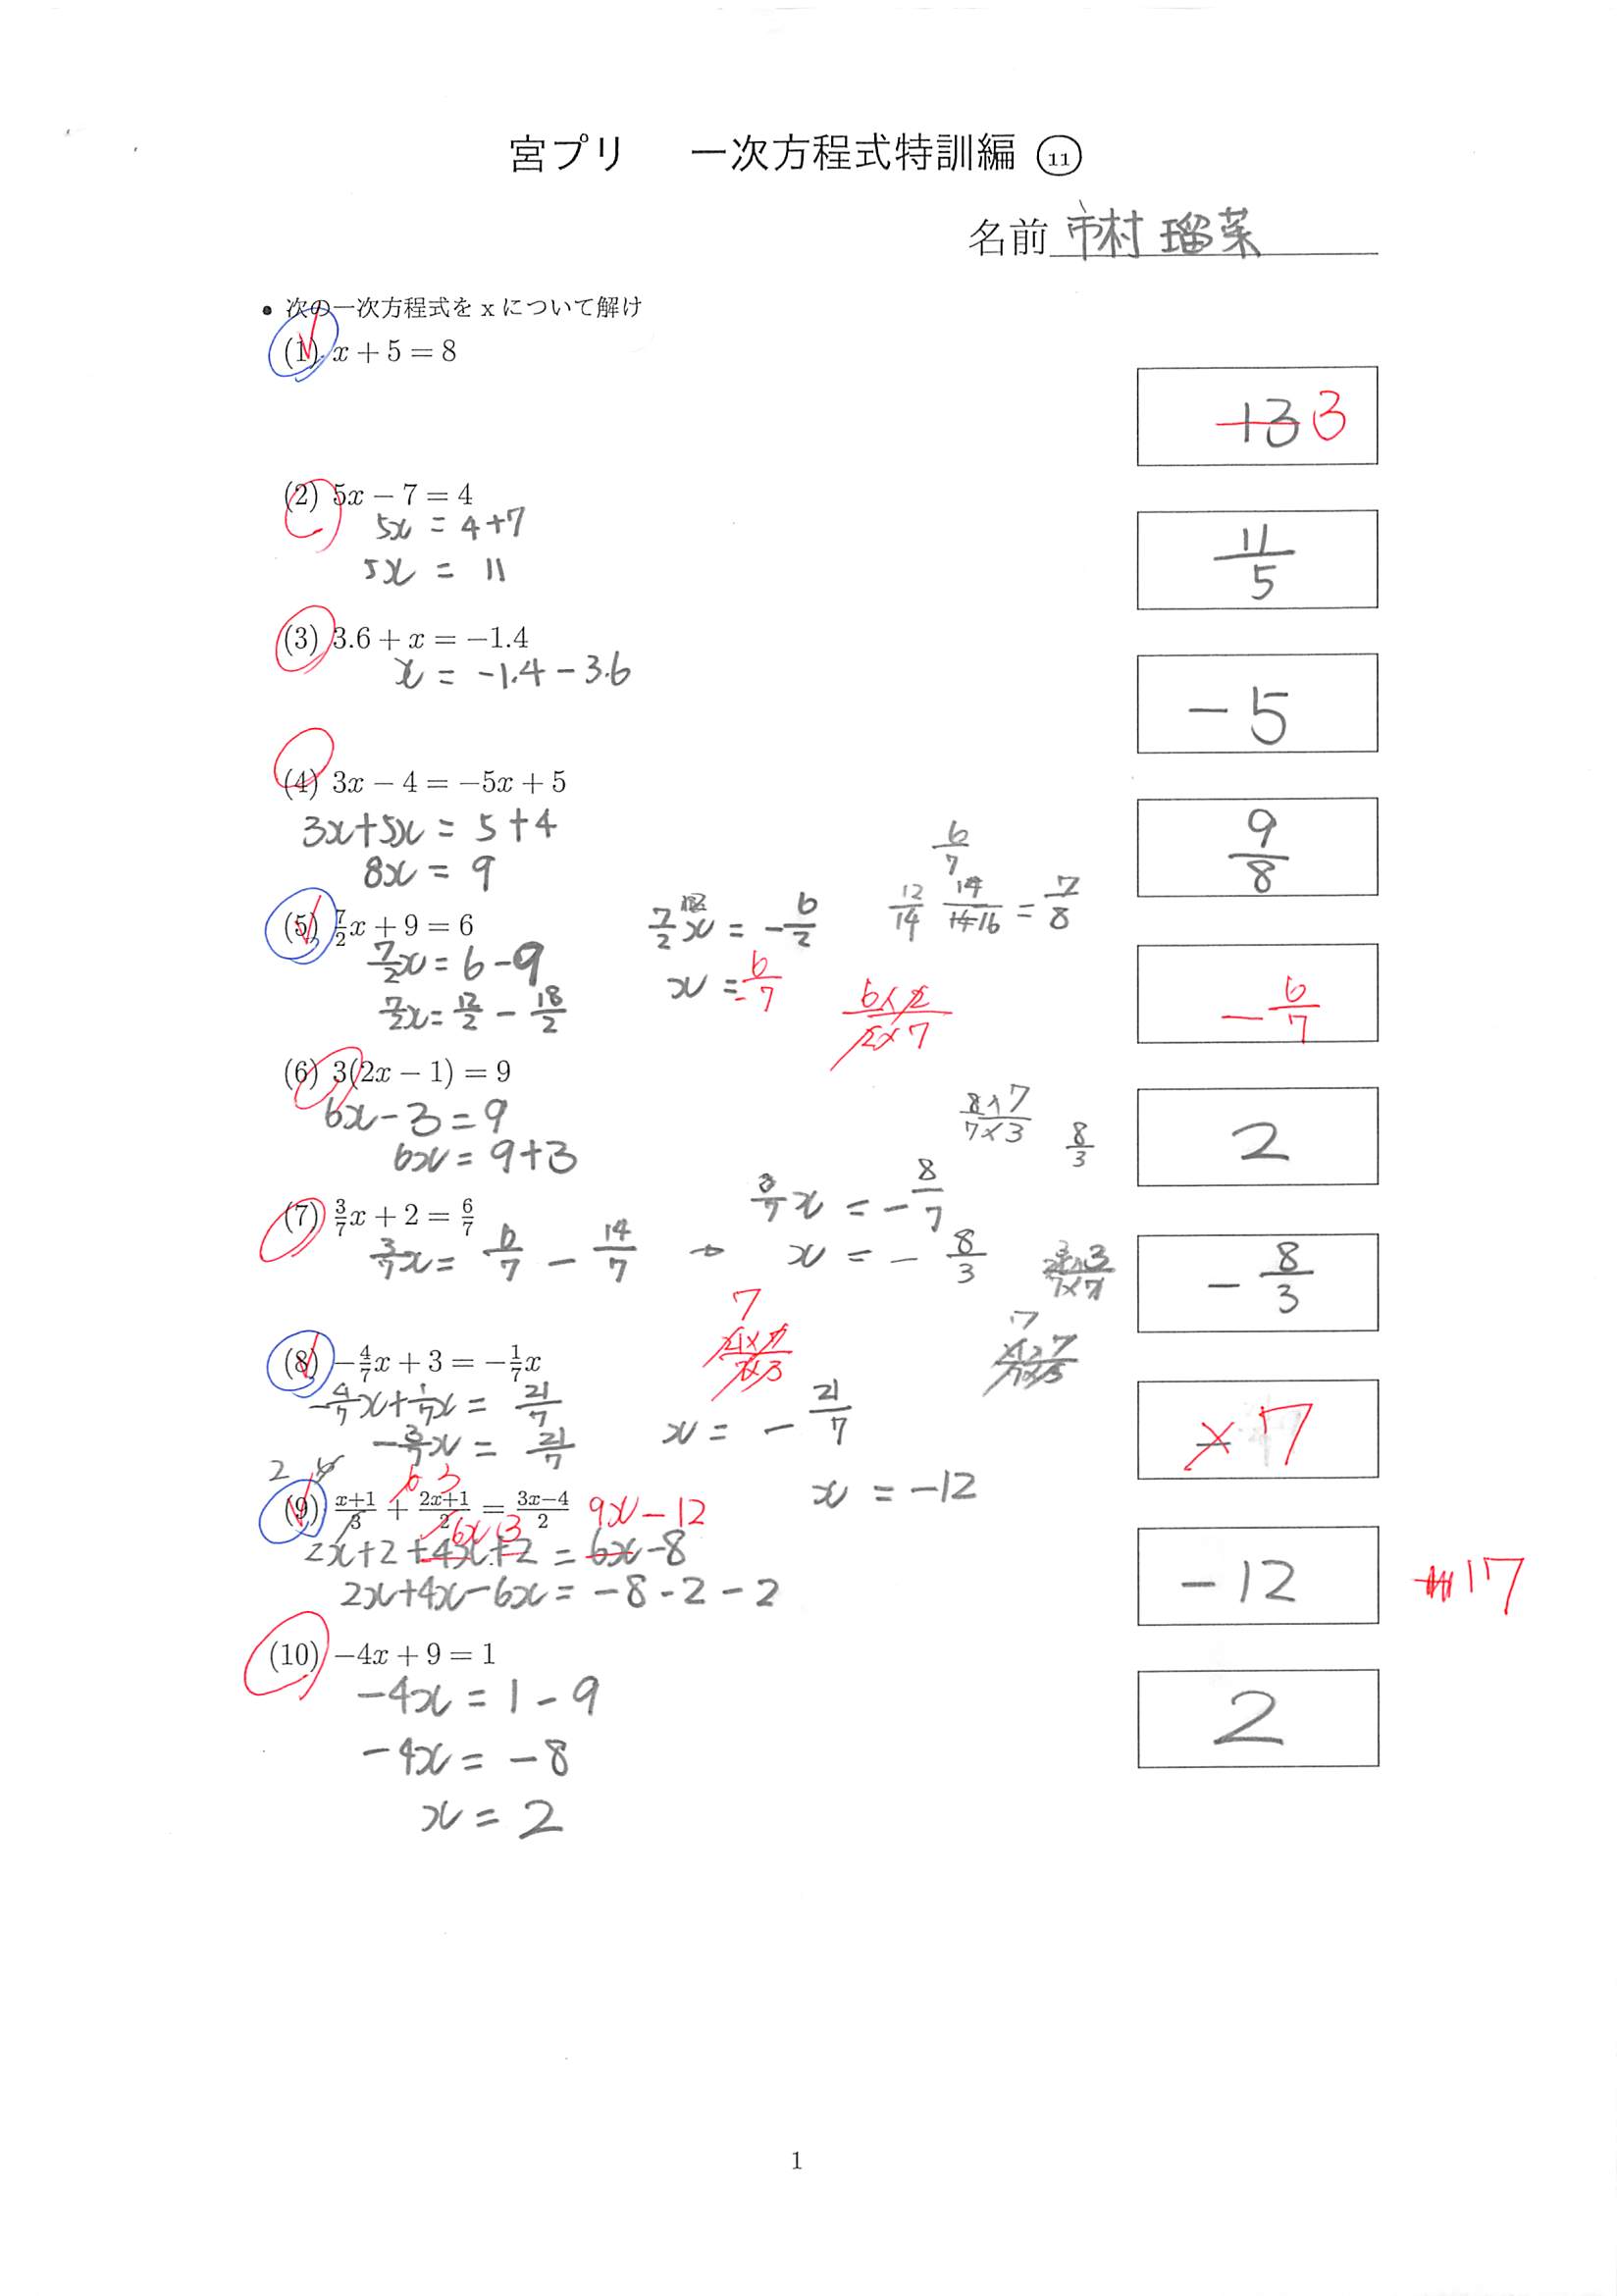 宮プリ 一次方程式特訓編 ⑪
名前 市村 瑠菜
• 次の一次方程式を x について解け
(1) x + 5 = 8
+3 3
(2) 5x − 7 = 4
5x = 4+7
5x = 11
11/5
(3) 3.6 + x = −1.4
x = -1.4 - 3.6
-5
(4) 3x − 4 = −5x + 5
3x+5x = 5+4
8x = 9
9/8
6/7
12/14 14/16 = 7/8
(5) 7/2 x + 9 = 6
7/2 x = 6-9
7/2 x = 12/2 - 18/2
7/2 x = - 6/2
x = - 6/7
6×2/2×7
- 6/7
(6) 3(2x − 1) = 9
6x-3=9
6x = 9+3
2
8×7/7×3 8/3
(7) 3/7 x + 2 = 6/7
3/7 x = 6/7 - 14/7 →
3/7 x = - 8/7
x = - 8/3
- 8/3
(8) −4/7 x + 3 = −1/7 x
-4/7 x + 1/7 x = 21/7
-3/7 x = 21/7
7
21×7/7×3
x = - 21/7
7
(9) x+1/3 + 2x+1/2 = 3x−4/2
2
6 3
9x-12
6x 3
2x+2+4x+2 = 6x-8
2x+4x-6x = -8-2-2
x = -12
-12
17
(10) −4x + 9 = 1
-4x = 1-9
-4x = -8
x = 2
2
1